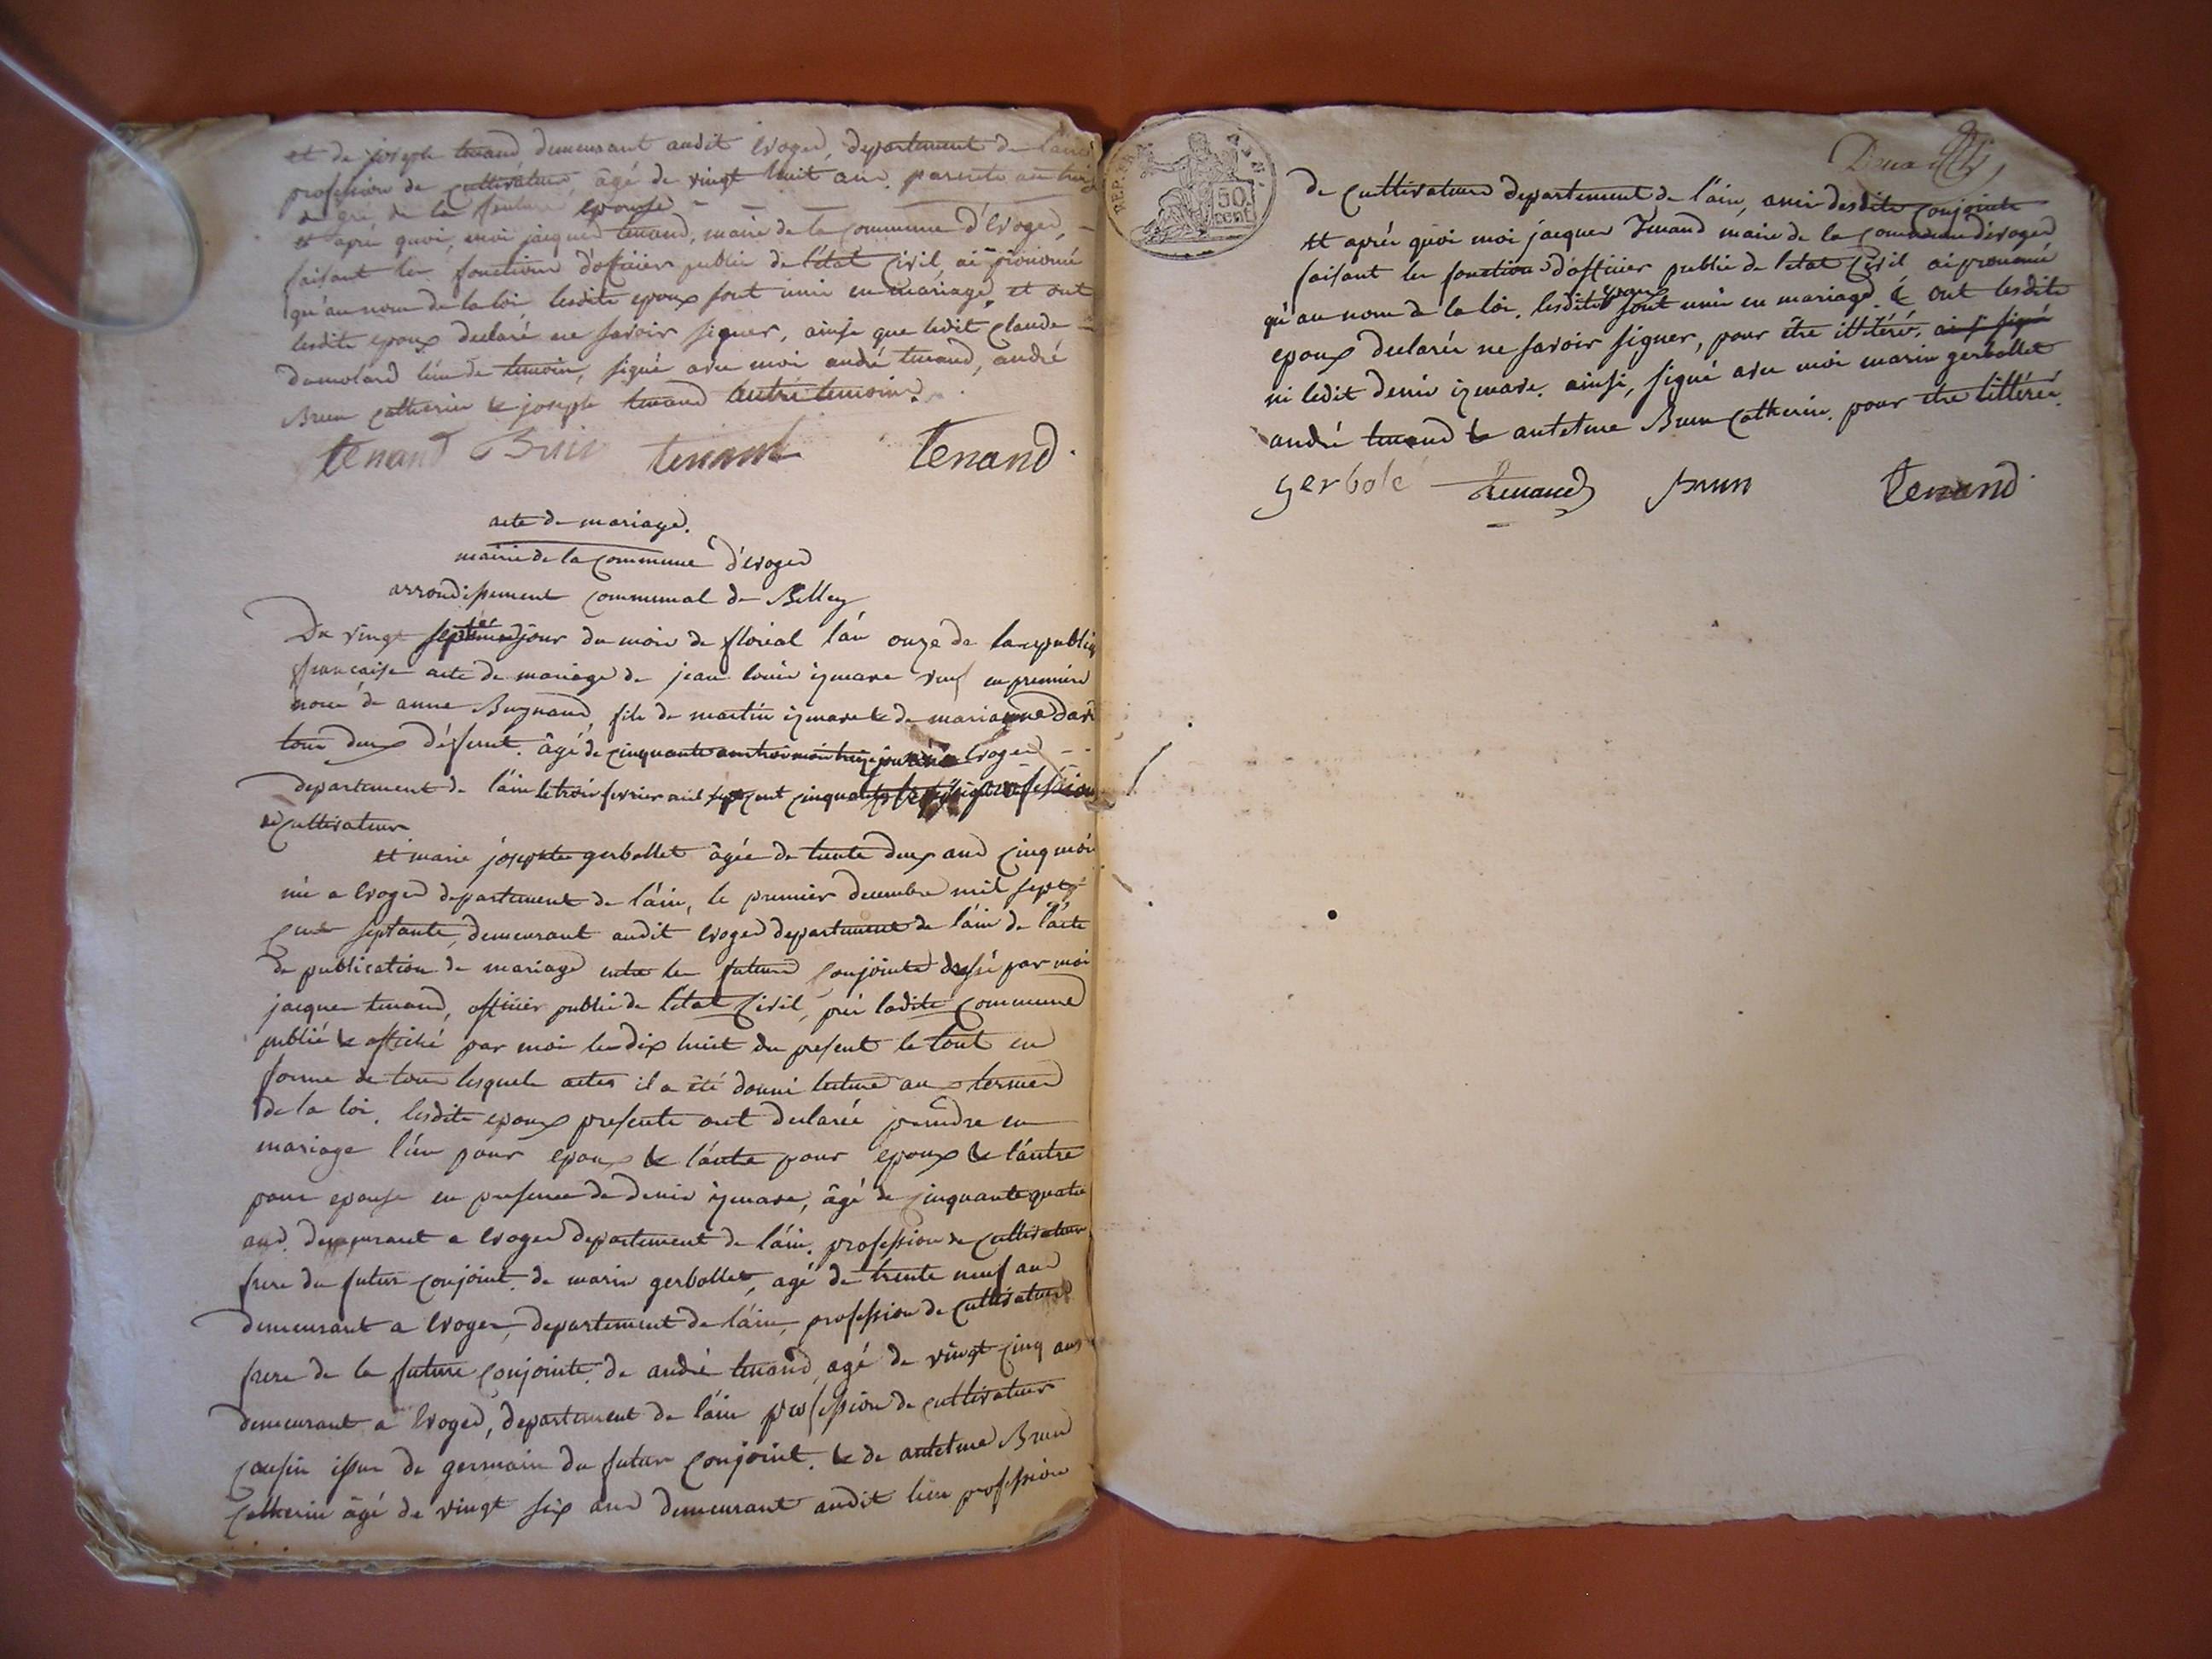 et de joseph tenand demeurant audit Evoges, departement de l'ain
profession de cultivateur, âgé de vingt huit ans, parents au trois
degré de la future epouse
et aprés quoi, moi jacques tenand, maire de la commune d'Evoges,
faisant les fonctions d'officier public de l'état civil, ai prononcé
qu'au nom de la loi, lesdits epoux sont unis en mariage, et ont
lesdits epoux declaré ne savoir signer, ainsi que ledit Claude
Dumolard l'un de temoins, signé avec moi andré tenand, andré
Brun catherin & joseph tenand autre temoins.
tenand Brun tenand tenand
acte de mariage.
mairie de la commune d'évoges
arrondissement communal de Belley
Du vingt jour du mois de floréal l'an onze de la republique
francaise acte de mariage de jean louis izmare veuf en premiere
noce de anne Bugnand, fils de martin izmare & de marianne
tous deux deffunt. âgé de cinquante ans trois mois treize jours né a Evoges
departement de l'ain le trois fevrier mil sept cent cinquante profession
de cultivateur
et marie josephte gerbollet âgée de trente deux ans cinq mois
née a Evoges departement de l'ain, le premier decembre mil sept
cent septante, demeurant audit Evoges departement de l'ain de l'acte
de publication de mariage entre les futurs conjoints dressé par moi
jacques tenand, officier public de l'état civil, prés ladite commune
publié & affiché par moi les dix huit du present le tout en
forme de tous lesquels actes il a été donné lecture aux termes
de la loi. lesdits epoux presents ont declarés prendre en
mariage l'un pour epoux & l'autre pour epoux & l'autre
pour epouse en presence de denis izmare, âgé de cinquante quatre
ans. demeurant a Evoges departement de l'ain. profession de cultivateur
frere du futur conjoint. de marin gerbollet, agé de trente neuf ans
demeurant a Evoges, departement de l'ain, profession de cultivateur
frere de la future conjointe. de andré tenand, agé de vingt cinq ans
demeurant a Evoges, departement de l'ain profession de cultivateur
cousin issue de germain du futur conjoint. & de antelme Brun
Catherin âgé de vingt six ans demeurant audit lieu profession
REP. FRA.
50 cent
de cultivateur departement de l'ain, ami desdits conjoints
et aprés quoi moi jacques Tenand maire de la commune d'évoges
faisant les fonctions d'officier public de l'etat civil ai prononcé
qu'au nom de la loi. lesdits epoux sont unis en mariage. & ont lesdits
epoux declarés ne savoir signer, pour être illitéré, ainsi signé
ni ledit denis izmare. ainsi, signé avec moi marin gerbollet
andré tenand & antelme Brun Catherin. pour etre littérés.
gerbole tenand brun tenand